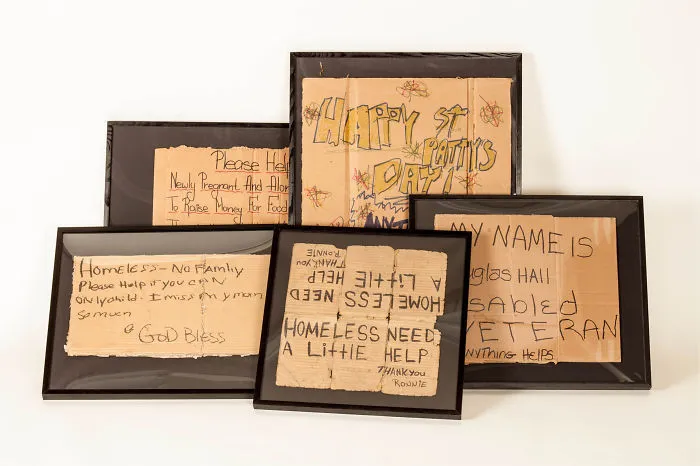 Please Help
Newly Pregnant And Alon
To Raise Money For Food
HAPPY ST
PATTY'S
DAY!
HOMELESS - NO FAMILY
Please Help if you CAN
ONLY child. I miss my mom
So much
GOD BLESS
HOMELESS NEED
A LITTLE HELP
THANK you
RONNIE
HOMELESS NEED
A LittLE HELP
THANK you
RONNIE
MY NAME IS
uglas HALL
sabled
VETERAN
NYTHING HELPS